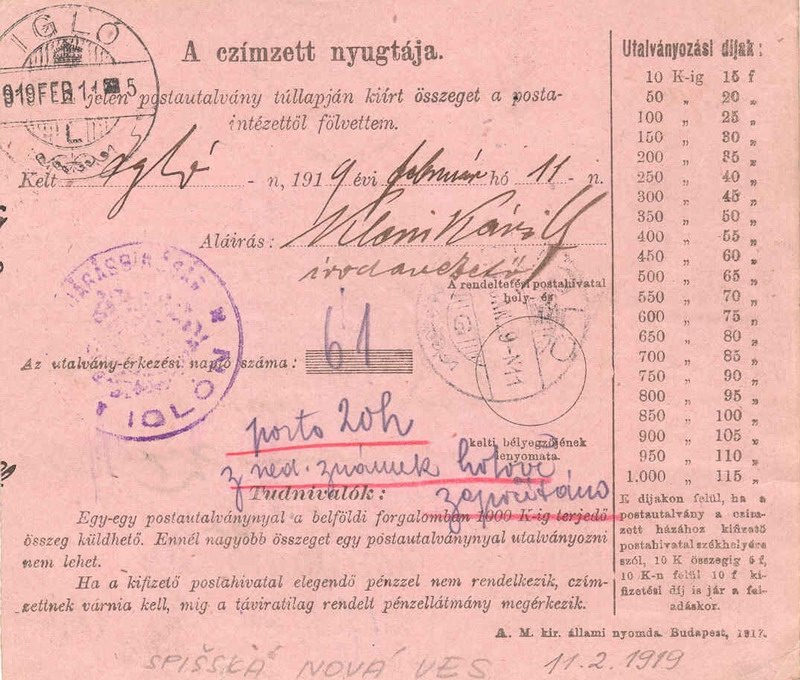 IGLÓ
919 FEB 11 5
L
A czímzett nyugtája.
A jelen postautalvány túllapján kiírt összeget a posta-
intézettől fölvettem.
Kelt Igló - n, 1919 évi február hó 11 - n.
Aláírás:
irodavezető
A rendeltetési postahivatal
hely- és
JÁRÁSBIRÓSÁG
IGLÓ
Az utalvány-érkezési napló száma: 61
porto 20h
kelti bélyegzőjének
lenyomata.
z ned. známek hotově
zapraveno
Tudnivalók:
Egy-egy postautalványnyal a belföldi forgalomban 1000 K-ig terjedő
összeg küldhető. Ennél nagyobb összeget egy postautalványnyal utalványozni
nem lehet.
Ha a kifizető postahivatal elegendő pénzzel nem rendelkezik, czím-
zettnek várnia kell, míg a táviratilag rendelt pénzellátmány megérkezik.
Utalványozási díjak:
10 K-ig 15 f
50 „ 20 „
100 „ 25 „
150 „ 30 „
200 „ 35 „
250 „ 40 „
300 „ 45 „
350 „ 50 „
400 „ 55 „
450 „ 60 „
500 „ 65 „
550 „ 70 „
600 „ 75 „
650 „ 80 „
700 „ 85 „
750 „ 90 „
800 „ 95 „
850 „ 100 „
900 „ 105 „
950 „ 110 „
1.000 „ 115 „
E díjakon felül, ha a
postautalvány a czím-
zett házához kifizető
postahivatal székhelyére
szól, 10 K összegig 5 f,
10 K-n felül 10 f ki-
fizetési díj is jár a fel-
adáskor.
A. M. kir. állami nyomda. Budapest, 1917.
SPIŠSKÁ NOVÁ VES 11.2.1919